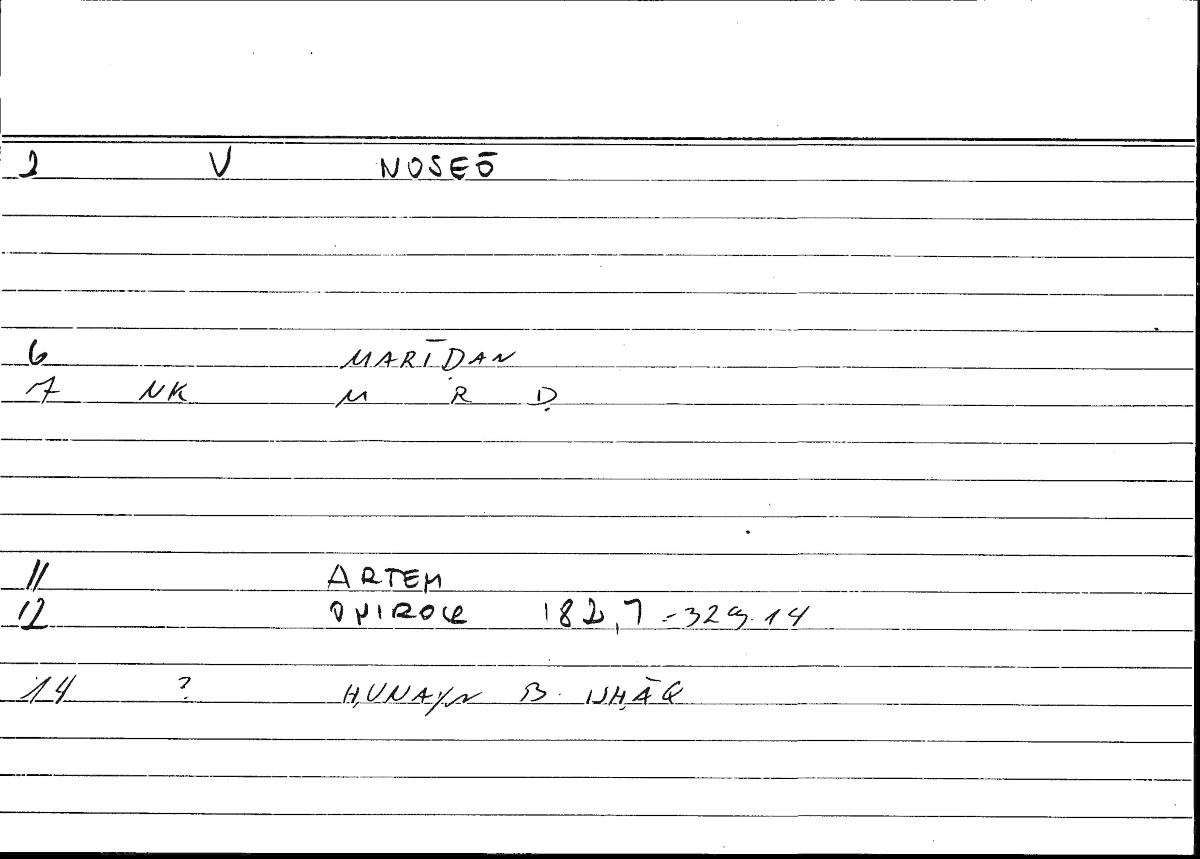 2 V NOSEŌ
6 MARĪḌAN
7 NK M R Ḍ
11 ARTEM
12 ONIROCR 182,7 - 329.14
14 ? ḤUNAYN B. ISḤĀQ